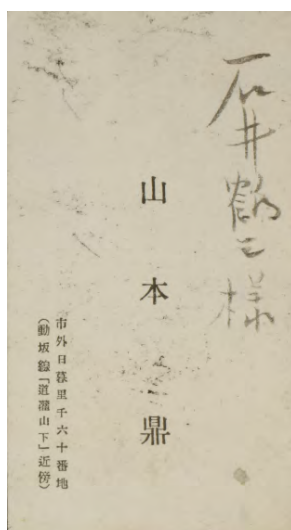 石井鶴三様
山本鼎
市外日暮里千六十番地
(動坂線「道灌山下」近傍)